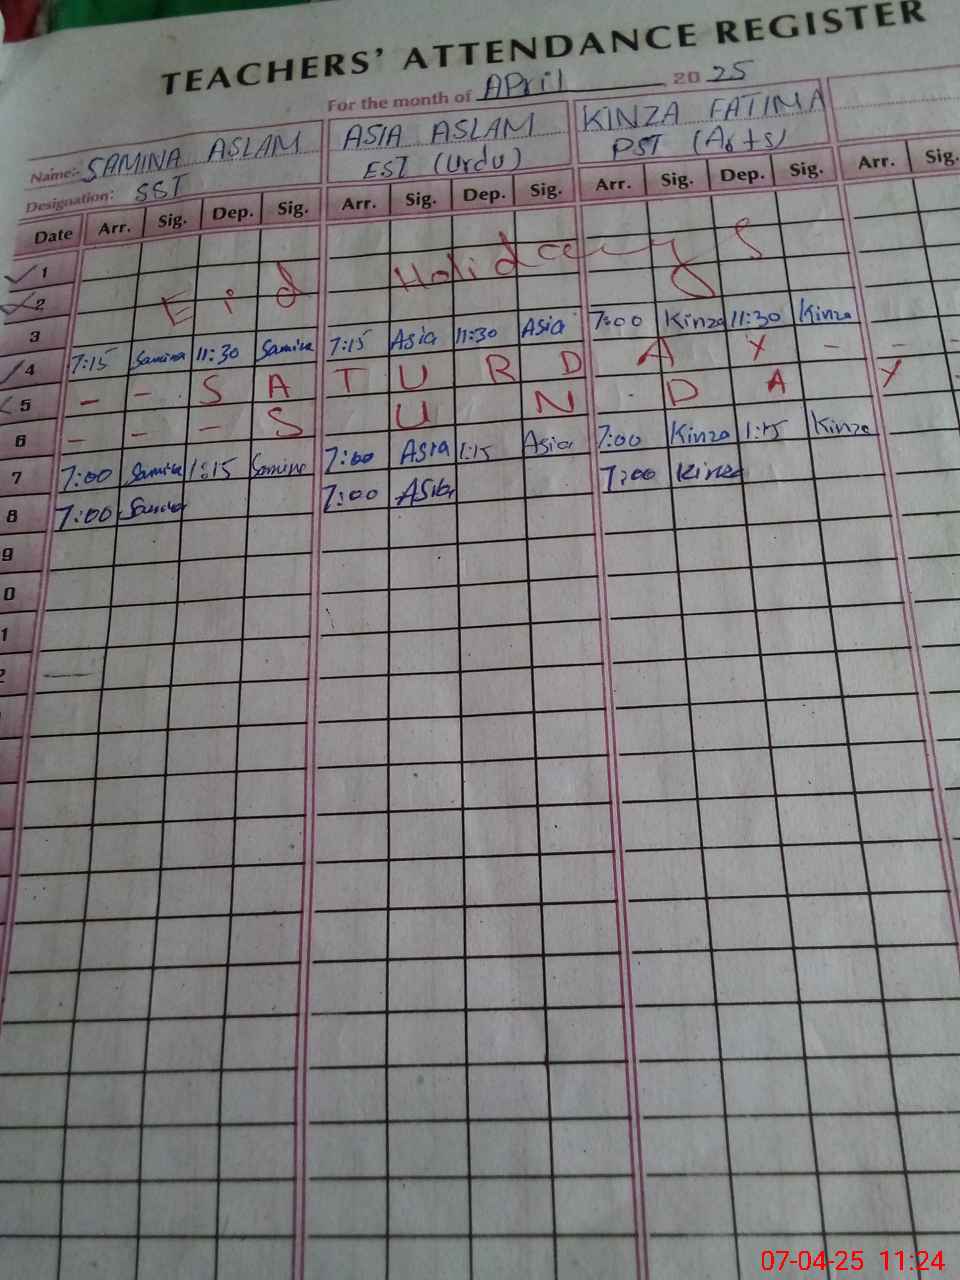 TEACHERS' ATTENDANCE REGISTER
For the month of April 2025
Name:- SAMINA ASLAM ASIA ASLAM KINZA FATIMA
Designation: SST EST (Urdu) PST (Arts)
Date Arr. Sig. Dep. Sig. Arr. Sig. Dep. Sig. Arr. Sig. Dep. Sig. Arr. Sig.
1
2 Eid Holidays
3
7:15 Samina 11:30 Samina 7:15 Asia 11:30 Asia 7:00 Kinza 11:30 Kinza
4
- - S A T U R D A Y - - -
5
- - - S U N D A Y -
6
7:00 Samina 1:15 Samina 7:00 Asia 1:15 Asia 7:00 Kinza 1:15 Kinza
7
7:00 Samina 7:00 Asia 7:00 Kinza
8
9
0
1
2
07-04-25 11:24